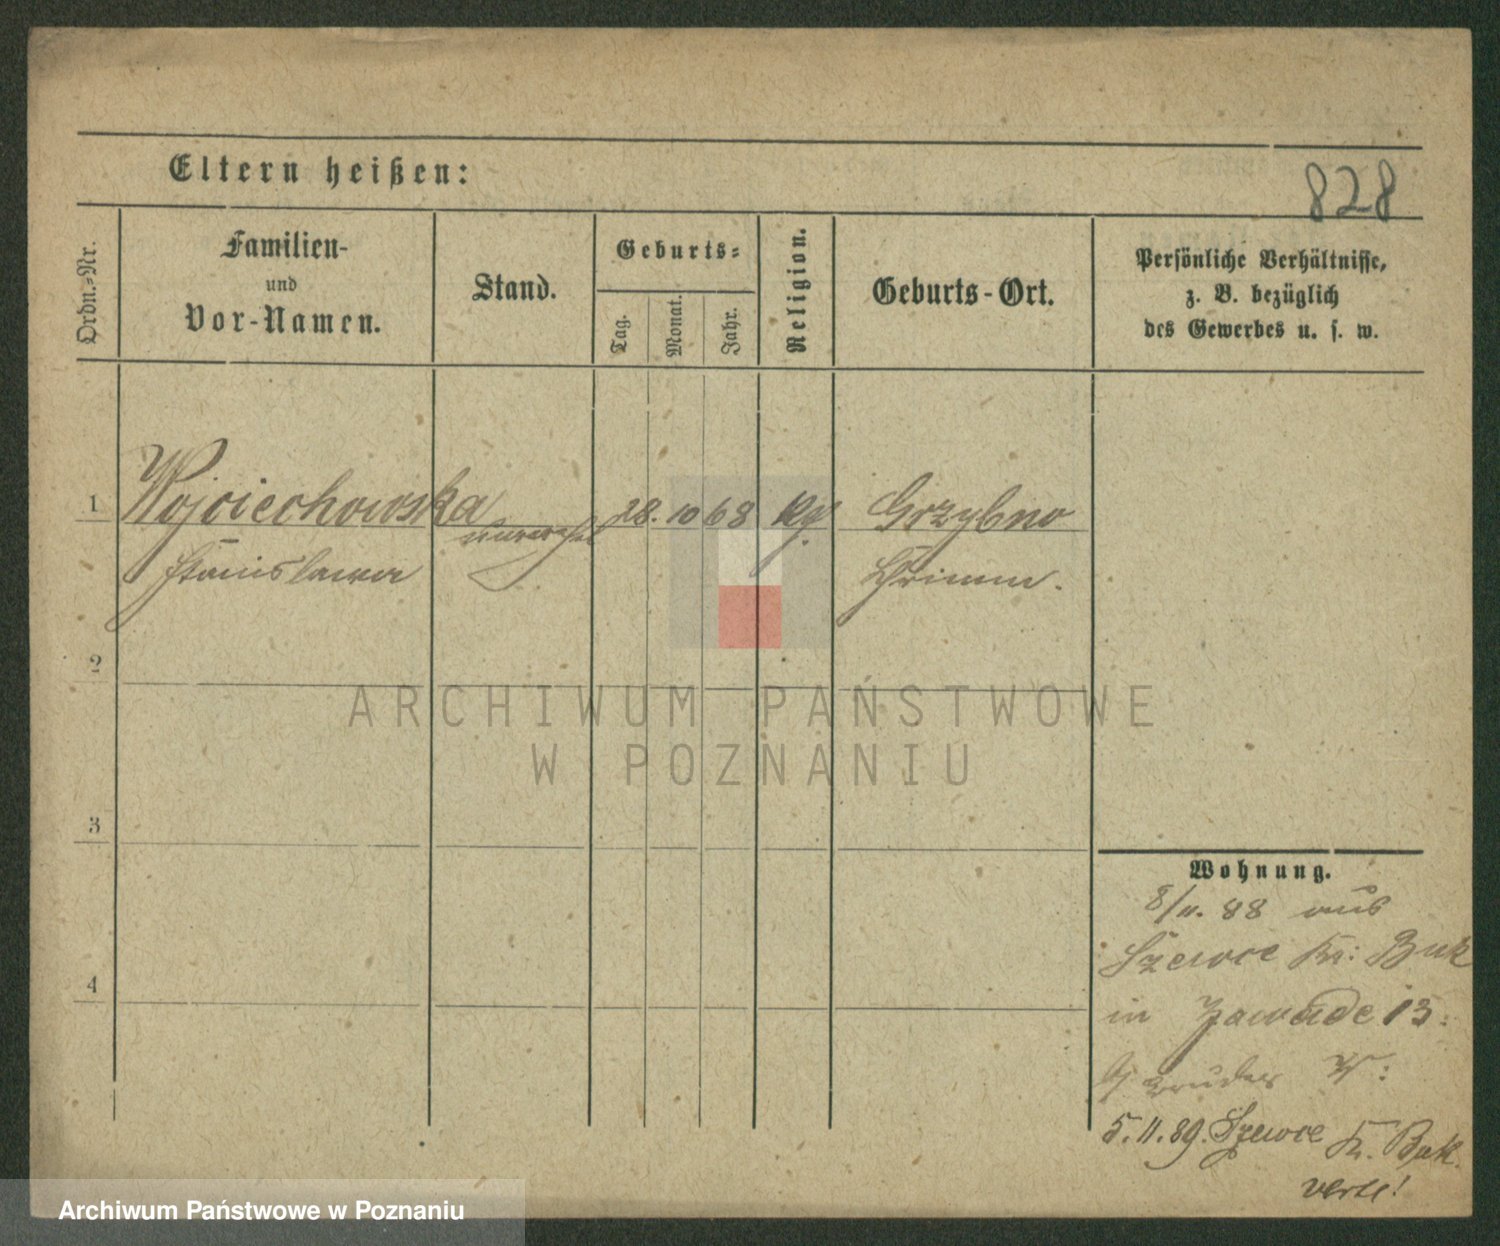 Eltern heißen:
828
Ordn.-Nr.
Familien-
und
Vor-Namen.
Stand.
Geburts-
Tag.
Monat.
Jahr.
Religion.
Geburts-Ort.
Persönliche Verhältnisse,
z. B. bezüglich
des Gewerbes u. s. w.
1 Wojciechowska 28. 10 68 Grzybno
Stanislawa Schrimm.
2
3
4
Wohnung.
8/11. 88 aus
Szewce Kr: Buk
in Zawade 13.
Bruder W:
5.11.89. Szewce Kr. Buk.
verte!
ARCHIWUM PAŃSTWOWE
W POZNANIU
Archiwum Państwowe w Poznaniu